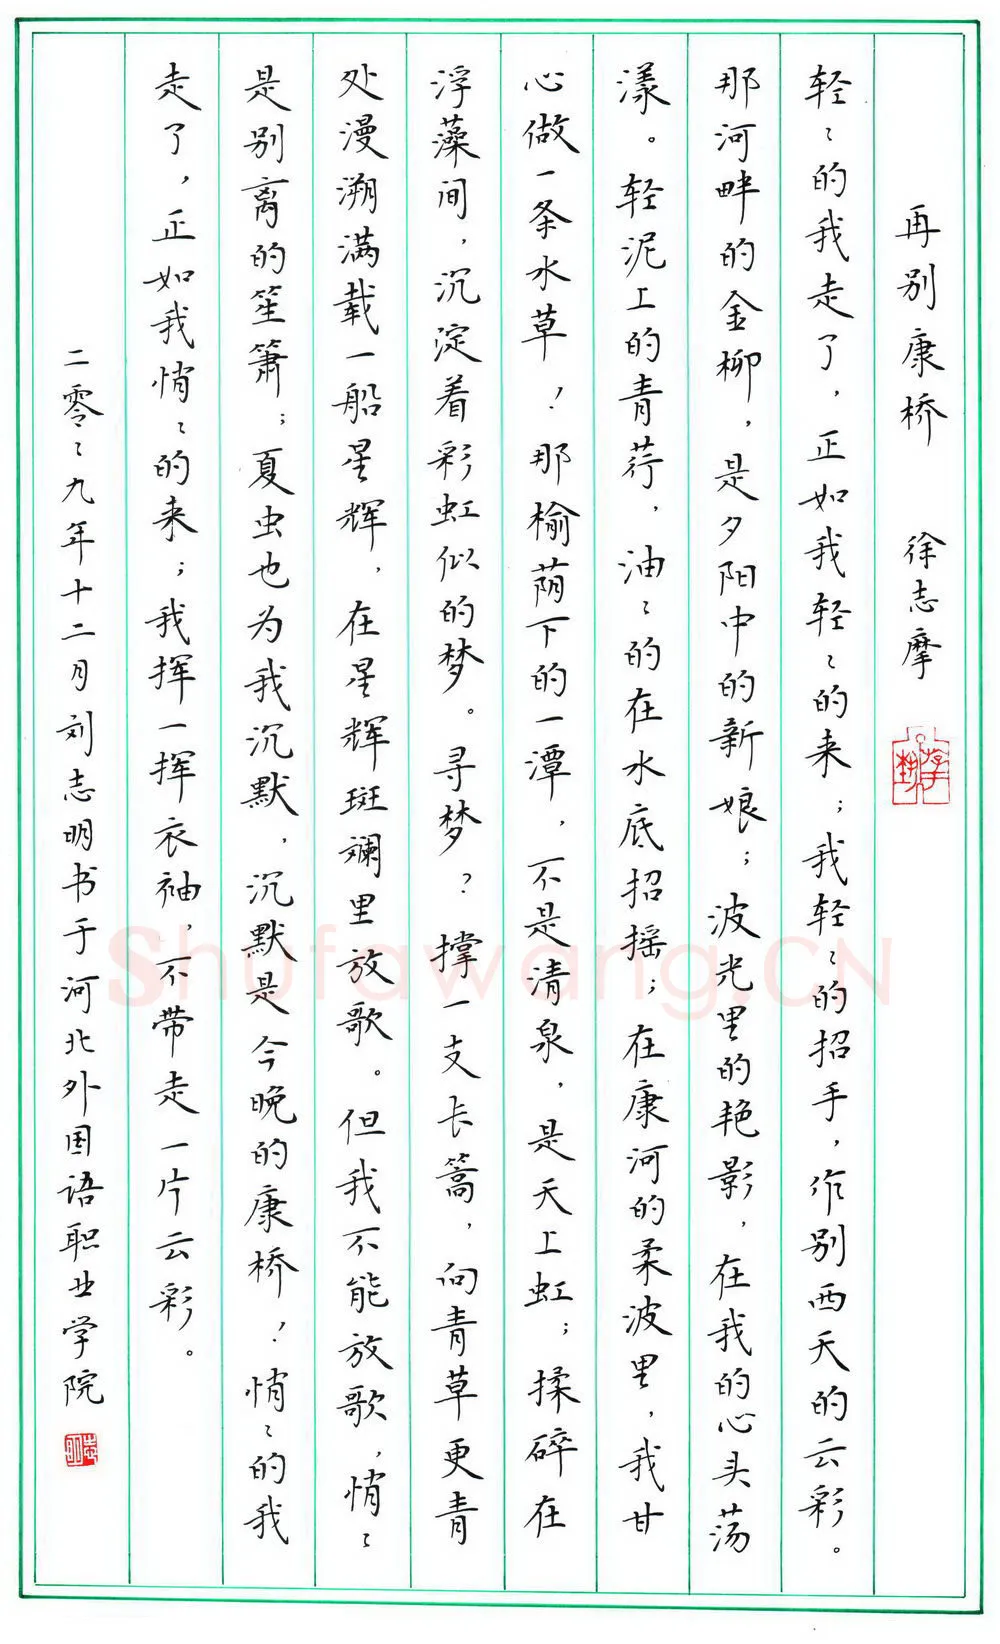 再别康桥 徐志摩
轻〻的我走了,正如我轻〻的来;我轻〻的招手,作别西天的云彩。
那河畔的金柳,是夕阳中的新娘;波光里的艳影,在我的心头荡
漾。轻泥上的青荇,油〻的在水底招摇;在康河的柔波里,我甘
心做一条水草!那榆荫下的一潭,不是清泉,是天上虹;揉碎在
浮藻间,沉淀着彩虹似的梦。寻梦?撑一支长篙,向青草更青
处漫溯满载一船星辉,在星辉斑斓里放歌。但我不能放歌,悄〻
是别离的笙箫;夏虫也为我沉默,沉默是今晚的康桥!悄〻的我
走了,正如我悄〻的来;我挥一挥衣袖,不带走一片云彩。
二零〻九年十二月刘志明书于河北外国语职业学院
志明
Shufawang.CN